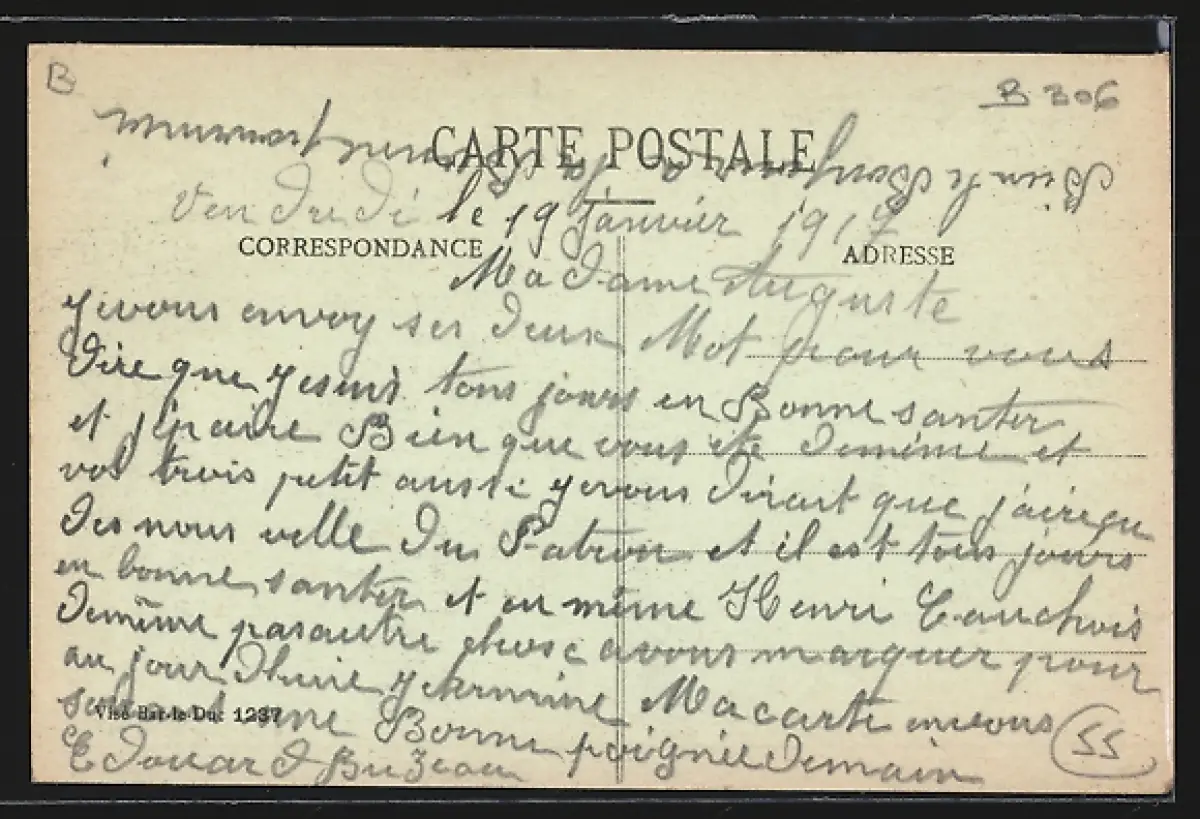 B
B 306
CARTE POSTALE
Bien le Bonjour a la
Vendredi le 19 Janvier 1917
CORRESPONDANCE
ADRESSE
Madame Auguste
yevous envoy ses deux Mot pour vous
dire que yesuis tous jours en Bonne santer
et jèpaire Bien que vous ete demême et
vos trois petit aussi yevous dirait que j'aireçu
des nous velle du Patron et il est tous jours
en bonne santer et en même Henri Cauchois
demême pasautre chose avous marquer pour
au jour dhuie yetermine Macarte envous
serrant une Bonne poignée demain
Visé Bar-le-Duc 1237
55
Edouard Buzeau